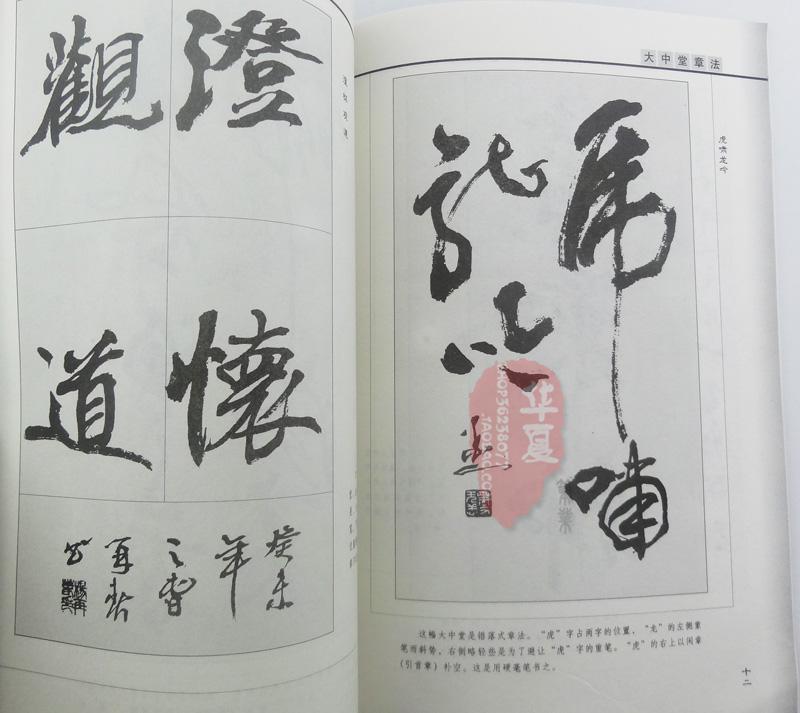 澄懷
觀道
癸未
年
之春
再春
澄怀观道
大中堂章法
虎嘯
龍吟
虎啸龙吟
华夏
这幅大中堂是错落式章法。“虎”字占两字的位置，“龙”的左侧重
笔而斜势，右侧略轻些是为了避让“虎”字的重笔。“虎”的右上以闲章
(引首章)补空。这是用硬毫笔书之。
十二